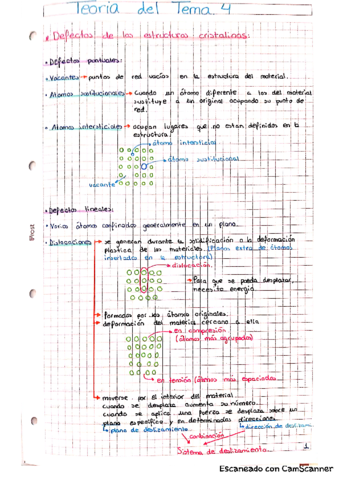 Teoría del Tema 4
Defectos de las estructuras cristalinas:
Defectos puntuales:
Vacantes → puntos de red vacíos en la estructura del material.
Átomos sustitucionales → Cuando un átomo diferente a los del material
sustituye a un original ocupando su punto de
red.
Átomos intersticiales → ocupan lugares que no están definidos en la
estructura.
átomo intersticial
átomo sustitucional
vacante
Defectos lineales:
Varios átomos confinados generalmente en un plano.
Dislocaciones → se generan durante la solidificación o la deformación
plástica de los materiales. (Plano extra de átomos
insertados en la estructura)
dislocación
Para que se pueda desplazar,
necesita energía
formados por los átomos originales.
deformación del material cercano a ella
en compresión
(átomos más agrupados)
en tensión (átomos más espaciados
moverse por el interior del material
cuando se desplaza aumenta su número
cuando se aplica una fuerza se desplaza sobre un
plano específico y en determinadas direcciones.
plano de deslizamiento
dirección de desliz
combinación
Sistema de deslizamiento
1
Escaneado con CamScanner